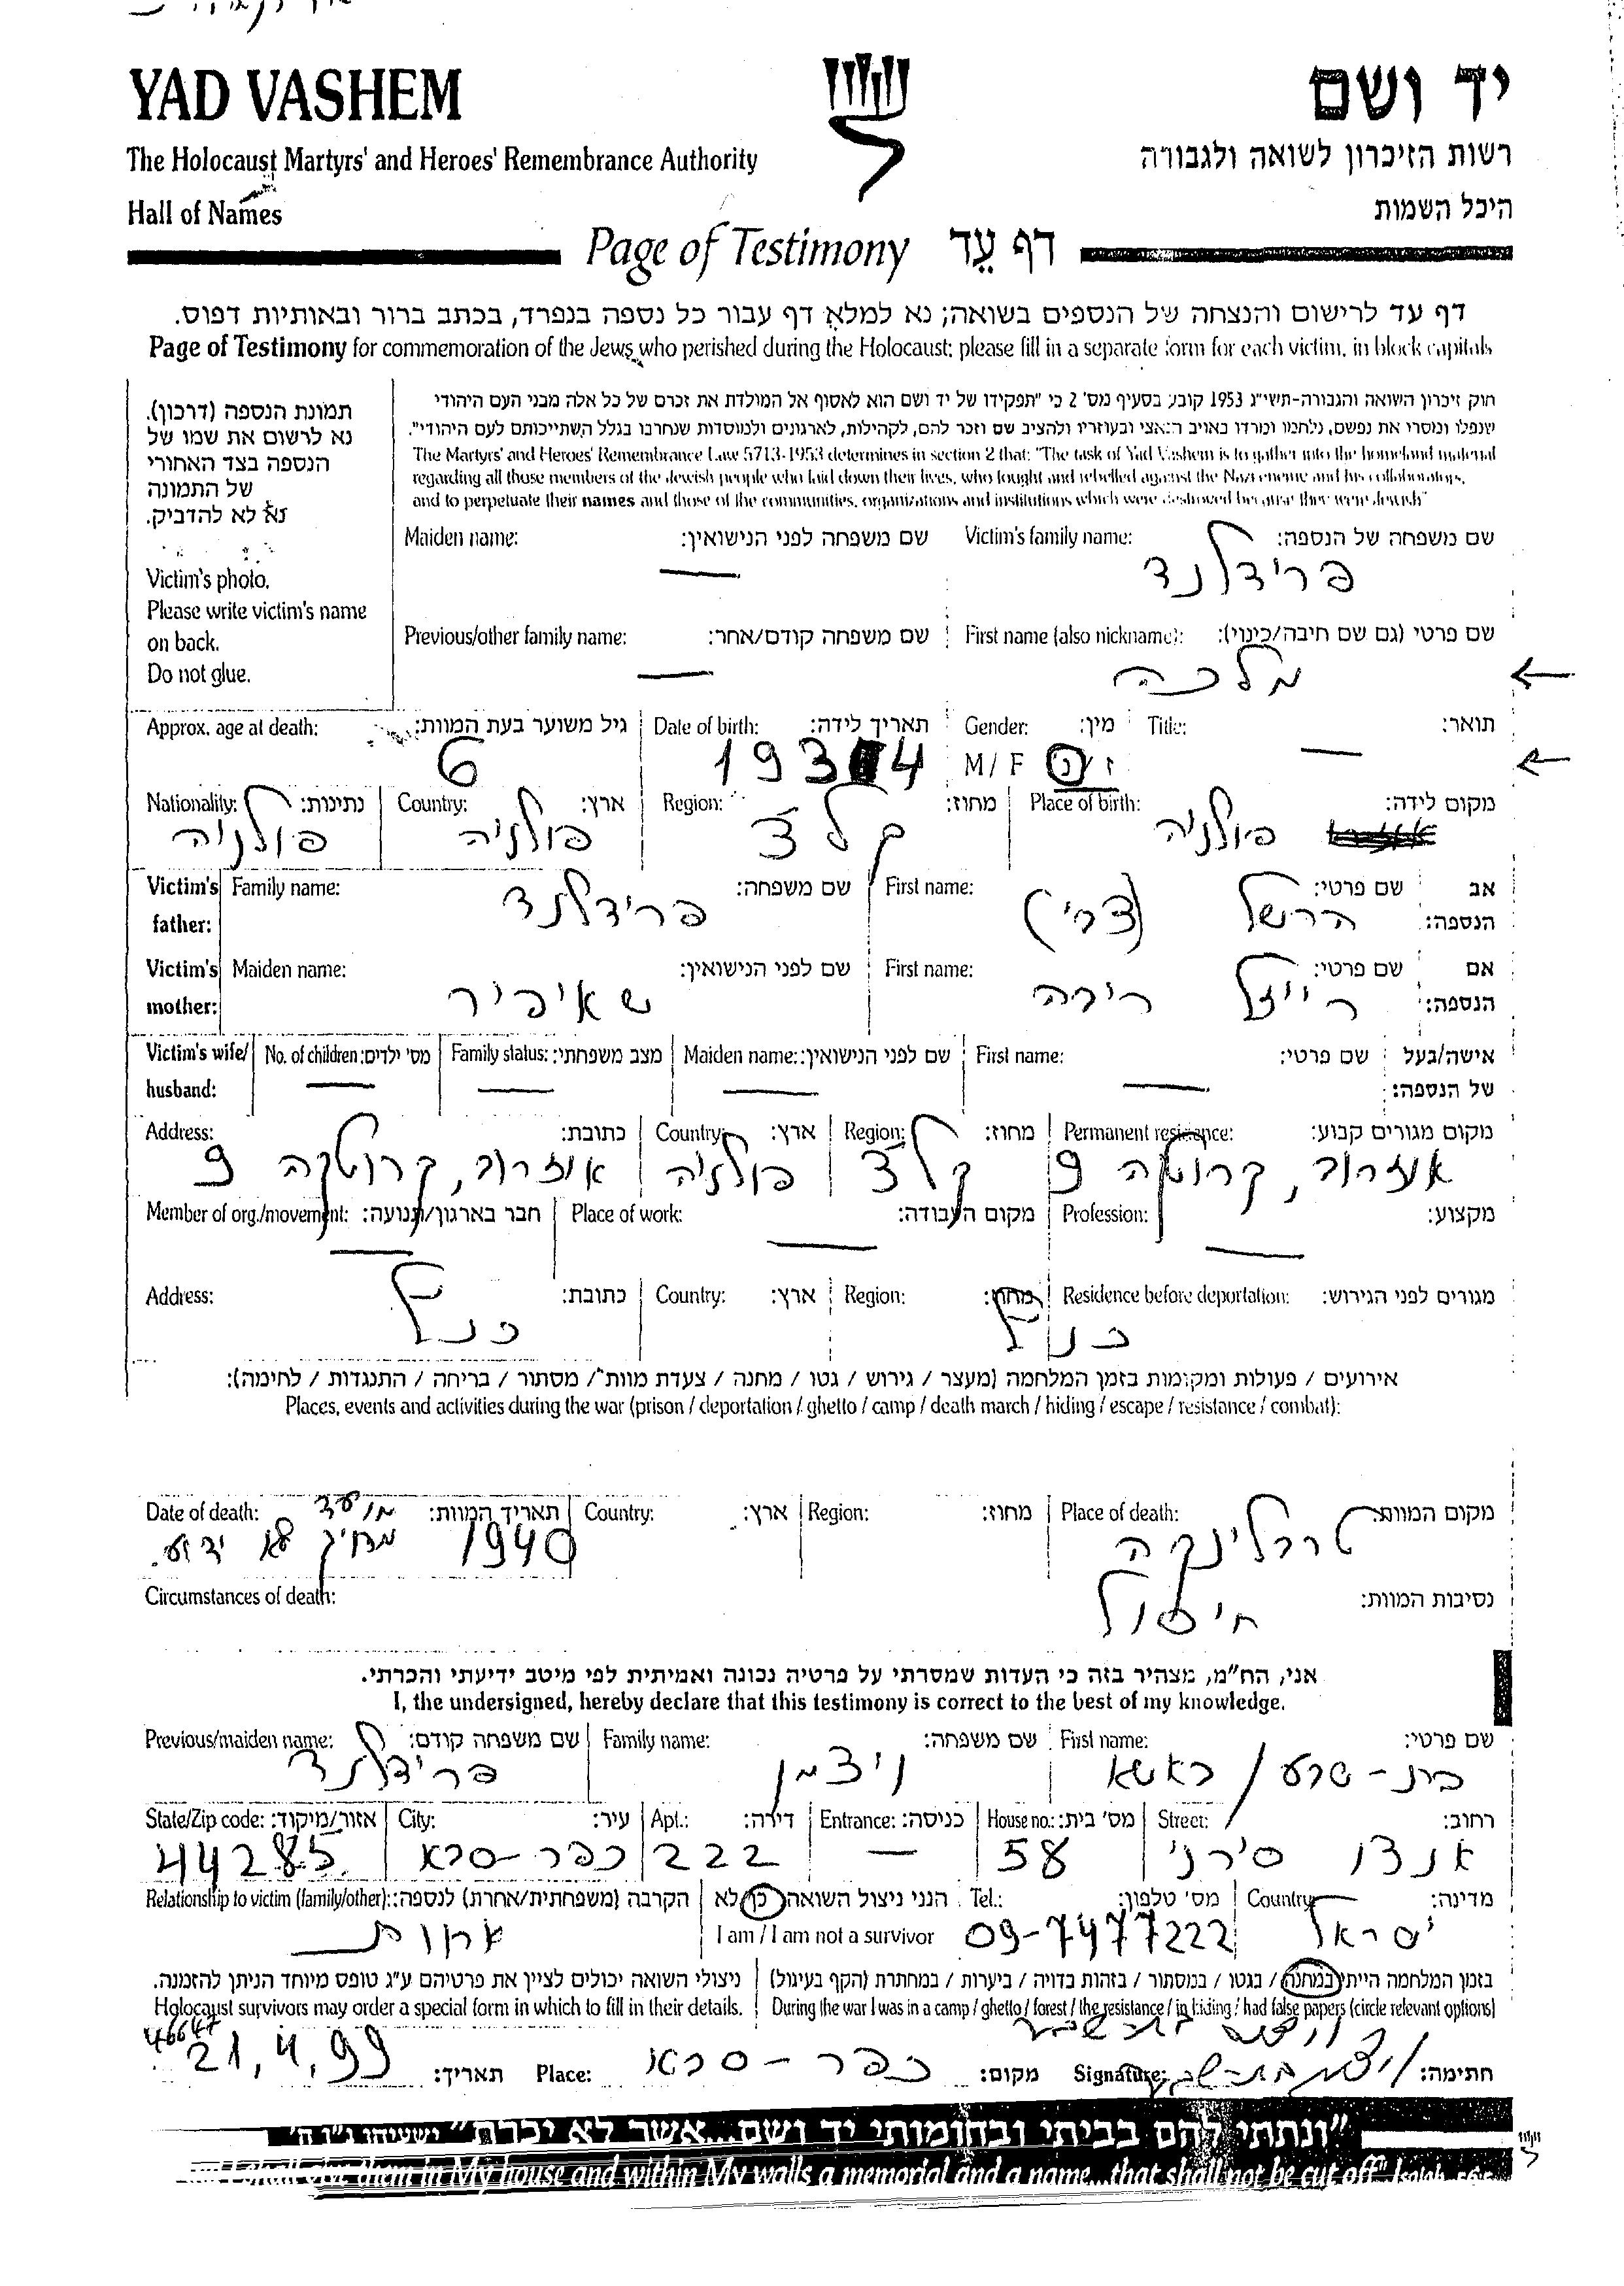 YAD VASHEM
יד ושם
The Holocaust Martyrs' and Heroes' Remembrance Authority
רשות הזיכרון לשואה ולגבורה
Hall of Names
היכל השמות
Page of Testimony דף עֵד
דף עד לרישום והנצחה של הנספים בשואה; נא למלא דף עבור כל נספה בנפרד, בכתב ברור ובאותיות דפוס.
Page of Testimony for commemoration of the Jews who perished during the Holocaust; please fill in a separate form for each victim, in block capitals
תמונת הנספה (דרכון).
נא לרשום את שמו של
הנספה בצד האחורי
של התמונה
נא לא להדביק.
Victim's photo.
Please write victim's name
on back.
Do not glue.
חוק זיכרון השואה והגבורה-תשי"ג 1953 קובע בסעיף מס' 2 כי "תפקידו של יד ושם הוא לאסוף אל המולדת את זכרם של כל אלה מבני העם היהודי
שנפלו ומסרו את נפשם, נלחמו ומרדו באויב הנאצי ובעוזריו ולהציב שם וזכר להם, לקהילות, לארגונים ולמוסדות שנחרבו בגלל השתייכותם לעם היהודי".
The Martyrs' and Heroes' Remembrance Law 5713-1953 determines in section 2 that: "The task of Yad Vashem is to gather into the homeland material
regarding all those members of the Jewish people who laid down their lives, who fought and rebelled against the Nazi enemy and his collaborators,
and to perpetuate their names and those of the communities, organizations and institutions which were destroyed because they were Jewish"
Victim's family name: שם משפחה של הנספה:
פרידלנד
Maiden name: שם משפחה לפני הנישואין:
First name (also nickname): שם פרטי (גם שם חיבה/כינוי):
מלכה
Previous/other family name: שם משפחה קודם/אחר:
Title: תואר:
Gender: מין:
M / F ז / נ
Date of birth: תאריך לידה:
1934
Approx. age at death: גיל משוער בעת המוות:
6
Place of birth: מקום לידה:
פולניה
Region: מחוז:
קלצ
Country: ארץ:
פולניה
Nationality: נתינות:
פולניה
Victim's father: אב הנספה:
First name: שם פרטי:
הרשל (צבי)
Family name: שם משפחה:
פרידלנד
Victim's mother: אם הנספה:
First name: שם פרטי:
רייזל
Maiden name: שם לפני הנישואין:
שאיפיר
Victim's wife/husband: אישה/בעל של הנספה:
First name: שם פרטי:
Maiden name: שם לפני הנישואין:
Family status: מצב משפחתי:
No. of children: מס' ילדים:
Permanent residence: מקום מגורים קבוע:
Region: מחוז:
קלצ
Country: ארץ:
פולניה
Address: כתובת:
Profession: מקצוע:
Place of work: מקום העבודה:
Member of org./movement: חבר בארגון/תנועה:
Residence before deportation: מגורים לפני הגירוש:
כנ"ל
Region: מחוז:
Country: ארץ:
Address: כתובת:
כנ"ל
אירועים / פעולות ומקומות בזמן המלחמה (מעצר / גירוש / גטו / מחנה / צעדת מוות / מסתור / בריחה / התנגדות / לחימה):
Places, events and activities during the war (prison / deportation / ghetto / camp / death march / hiding / escape / resistance / combat):
Place of death: מקום המוות:
טרבלינקה
Region: מחוז:
Country: ארץ:
Date of death: תאריך המוות:
1940 מועד
מדויק לא ידוע.
Circumstances of death: נסיבות המוות:
חיסול
אני, הח"מ, מצהיר בזה כי העדות שמסרתי על פרטיה נכונה ואמיתית לפי מיטב ידיעתי והכרתי.
I, the undersigned, hereby declare that this testimony is correct to the best of my knowledge.
First name: שם פרטי:
בת-שבע /
Family name: שם משפחה:
ויצמן
Previous/maiden name: שם משפחה קודם:
פרידלנד
Street: רחוב:
אנצו סירני
House no.: מס' בית:
58
Entrance: כניסה:
Apt.: דירה:
222
City: עיר:
כפר-סבא
State/Zip code: אזור/מיקוד:
44285
Country: מדינה:
ישראל
Tel.: מס' טלפון:
09-7477222
הנני ניצול השואה כן לא
I am / I am not a survivor
Relationship to victim (family/other): הקרבה (משפחתית/אחרת) לנספה:
אחות
בזמן המלחמה הייתי במחנה / בגטו / במסתור / בזהות בדויה / ביערות / במחתרת (הקף בעיגול)
During the war I was in a camp / ghetto / forest / the resistance / in hiding / had false papers (circle relevant options)
ניצולי השואה יכולים לציין את פרטיהם ע"ג טופס מיוחד הניתן להזמנה.
Holocaust survivors may order a special form in which to fill in their details.
חתימה: Signature:
מקום: כפר-סבא Place:
תאריך: 21,4,99
"ונתתי להם בביתי ובחומותי יד ושם...אשר לא יכרת" ישעיהו נ"ו ה'
I shall give them in My house and within My walls a memorial and a name...that shall not be cut off" Isaiah 56:5